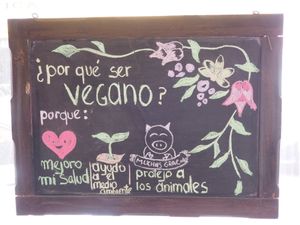 ¿por qué ser
VEGANO?
porque:
MUCHAS GRACIAS
mejoro
mi salud
ayudo
a el
medio
ambiente
protejo a
los animales